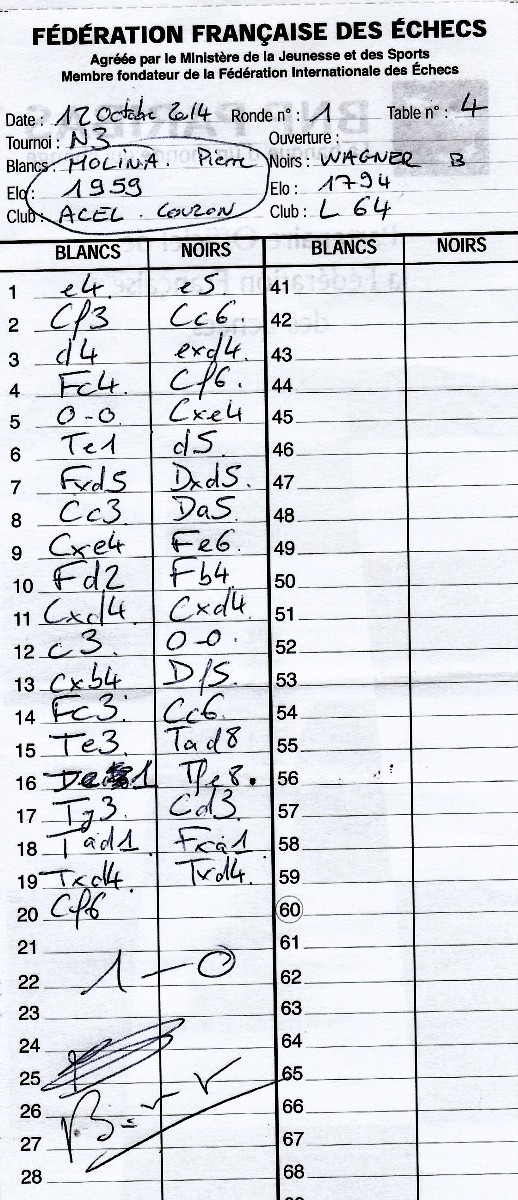 FÉDÉRATION FRANÇAISE DES ÉCHECS
Agréée par le Ministère de la Jeunesse et des Sports
Membre fondateur de la Fédération Internationale des Échecs
Date : 12 Octobre 2014 Ronde n° : 1 Table n° : 4
Tournoi : N3 Ouverture :
Blancs : MOLINA. Pierre Noirs : WAGNER B
Elo : 1959 Elo : 1794
Club : ACEL. COUZON Club : L 64
BLANCS NOIRS BLANCS NOIRS
1 e4 e5 41
2 Cf3 Cc6. 42
3 d4 exd4. 43
4 Fc4. Cf6. 44
5 0-0 Cxe4 45
6 Te1 d5. 46
7 Fxd5 Dxd5. 47
8 Cc3 Da5. 48
9 Cxe4 Fe6. 49
10 Fd2 Fb4. 50
11 Cxd4. Cxd4. 51
12 c3. 0-0. 52
13 cxb4 Df5. 53
14 Fc3. Cc6. 54
15 Te3. Tad8 55
16 1 Tfe8. 56
17 Tg3. Cd3. 57
18 Tad1 Fxa1 58
19 Txd4. Txd4. 59
20 Cf6 60
21 61
22 1-0 62
23 63
24 64
25 65
26 66
27 67
28 68